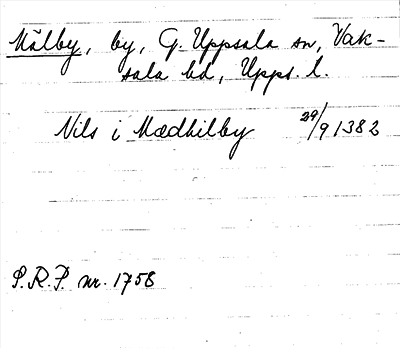 Målby, by, G. Uppsala sn, Vak-
sala hd, Upps. l.
Nils i Mædhilby 29/9 1382
S.R.P. nr. 1758